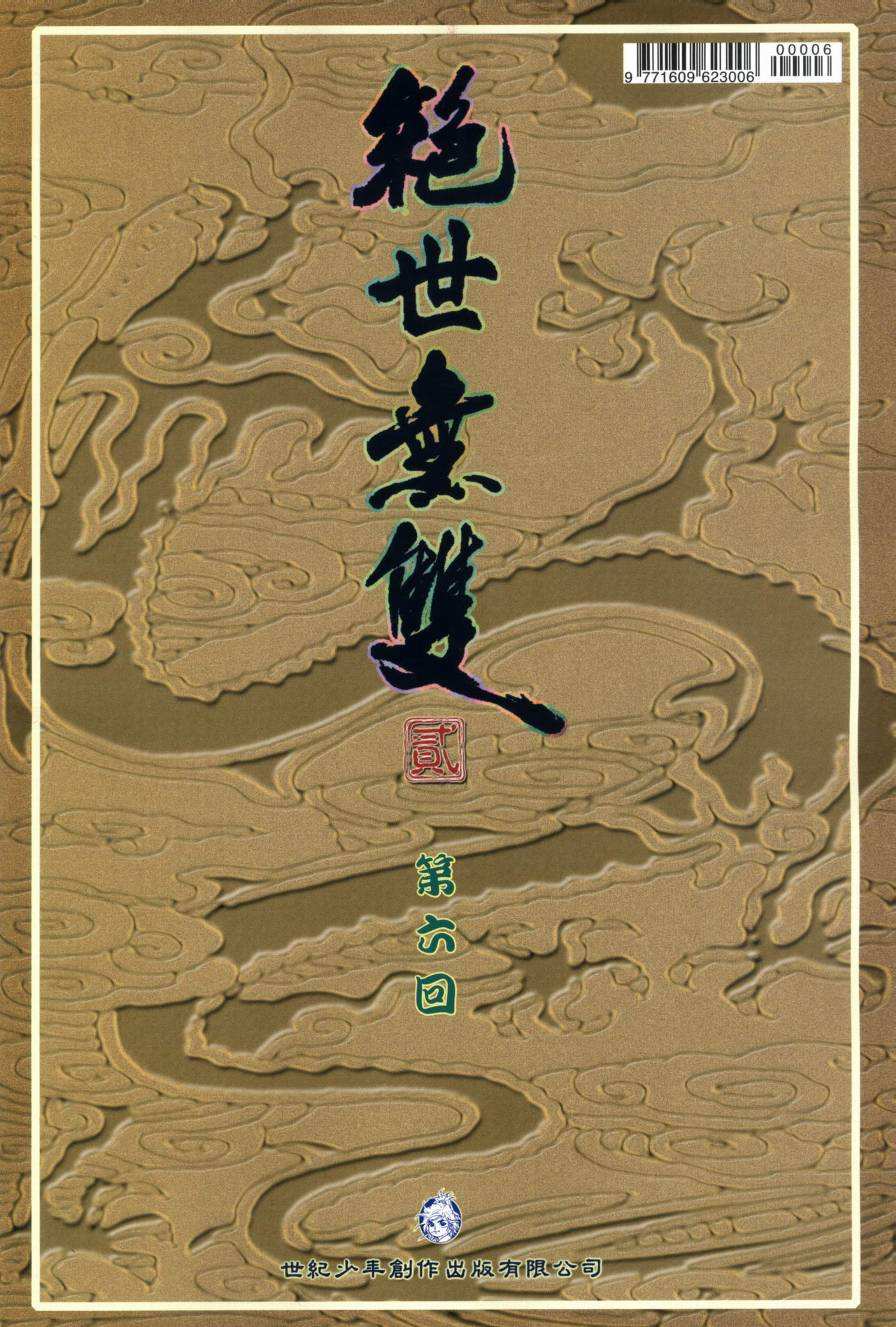 00006
9 771609 623006
絕世無雙
貳
第六回
世紀少年創作出版有限公司